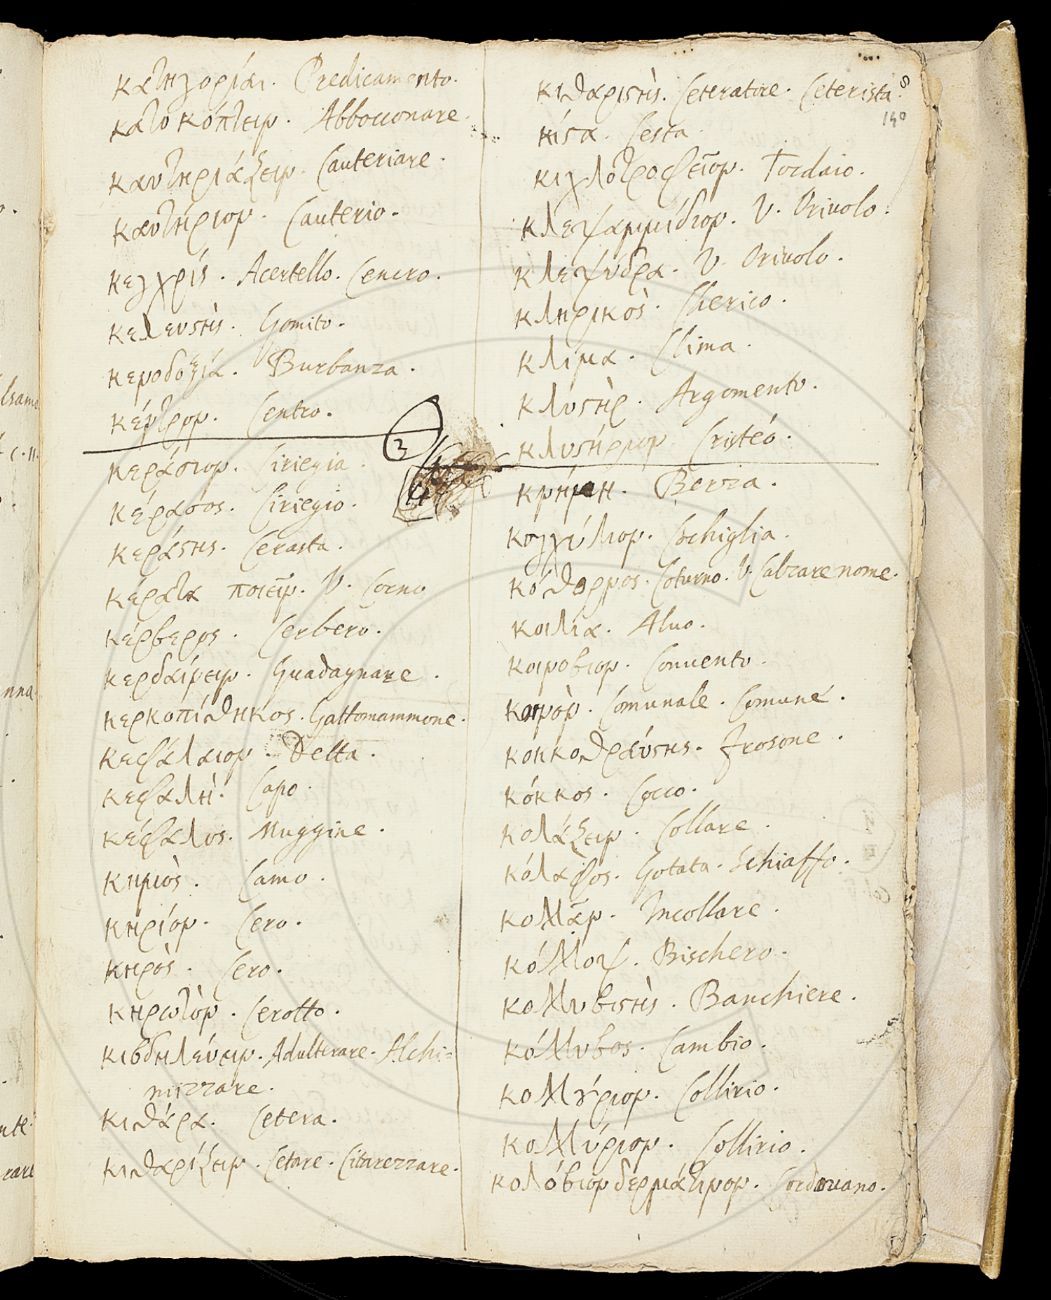 κατηγορίαι. Predicamento.
κατακόπτειν. Abbocconare.
καυτηριάζειν. Cauteriare.
καυτήριον. Cauterio.
κεγχρίς. Acertello. Cencro.
κελευστής. Gomito.
κενοδοξία. Burbanza.
κέντρον. Centro.
3
κεράσιον. Ciriegia.
κέρασος. Ciriegio.
κεράστης. Cerasta.
κέρατα ποιεῖν. V. Corno
κέρβερος. Cerbero.
κερδαίνειν. Guadagnare.
κερκοπίθηκος. Gattomammone.
κεφάλαιον. Delta.
κεφαλή. Capo.
κέφαλος. Muggine.
κημὸς. Camo.
κηρίον. Cero.
κηρὸς. Cero.
κηρωτὸν. Cerotto.
κιβδηλεύειν. Adulterare. Alchi-
mizzare.
κιθάρα. Cetera.
κιθαρίζειν. Cetare. Citarezzare.
κιθαριστὴς. Ceteratore. Ceterista.
140
κίστα. Cesta.
κιχλοτροφεῖον. Tordaio.
κλεψαμμίδιον. V. Orivolo.
κλεψύδρα. V. Orivolo.
κληρικὸς. Cherico.
κλίμα. Clima.
κλυστὴρ. Argomento.
κλυστήριον. Cristéo.
κνήμη. Berza.
κογχύλιον. Cochiglia.
κόθορνος. Coturno. V. Calzare nome.
κοιλία. Alvo.
κοινόβιον. Convento.
κοινὸν. Comunale. Comune.
κοκκοθραύστης. Frosone.
κόκκος. Cocco.
κολάζειν. Collare.
κόλαφος. Gotata. Schiaffo.
κολλᾶν. Incollare.
κόλλοψ. Bischero.
κολλυβιστὴς. Banchiere.
κόλλυβος. Cambio.
κολλύριον. Collirio.
κολλύριον. Collirio.
κολόβιον δερμάτινον. Cordovano.